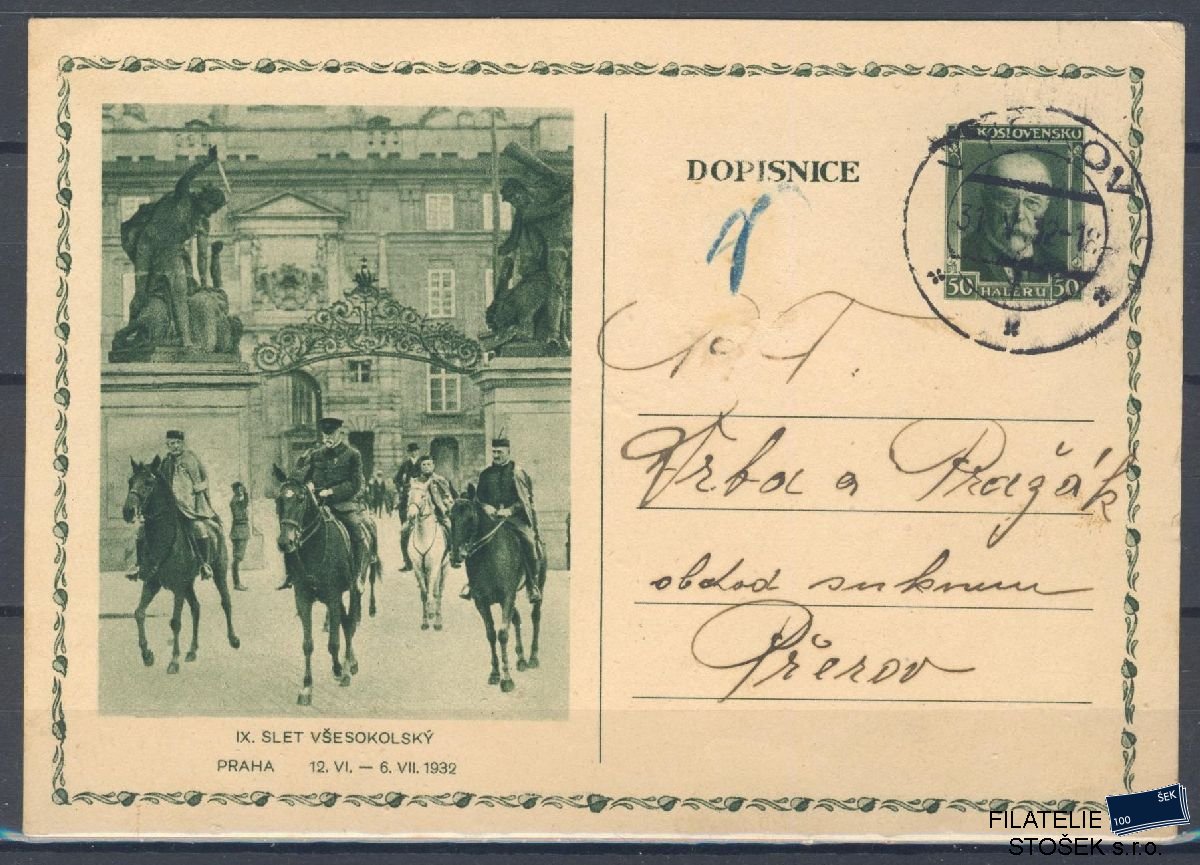 DOPISNICE
KOSLOVENSKO
50 HALÉŘŮ 50
31.V.32-18
P. T.
Vrba a Pražák
obchod suknem
Přerov
IX. SLET VŠESOKOLSKÝ
PRAHA 12. VI. — 6. VII. 1932
FILATELIE
STOŠEK s.r.o.
100 ŠEK